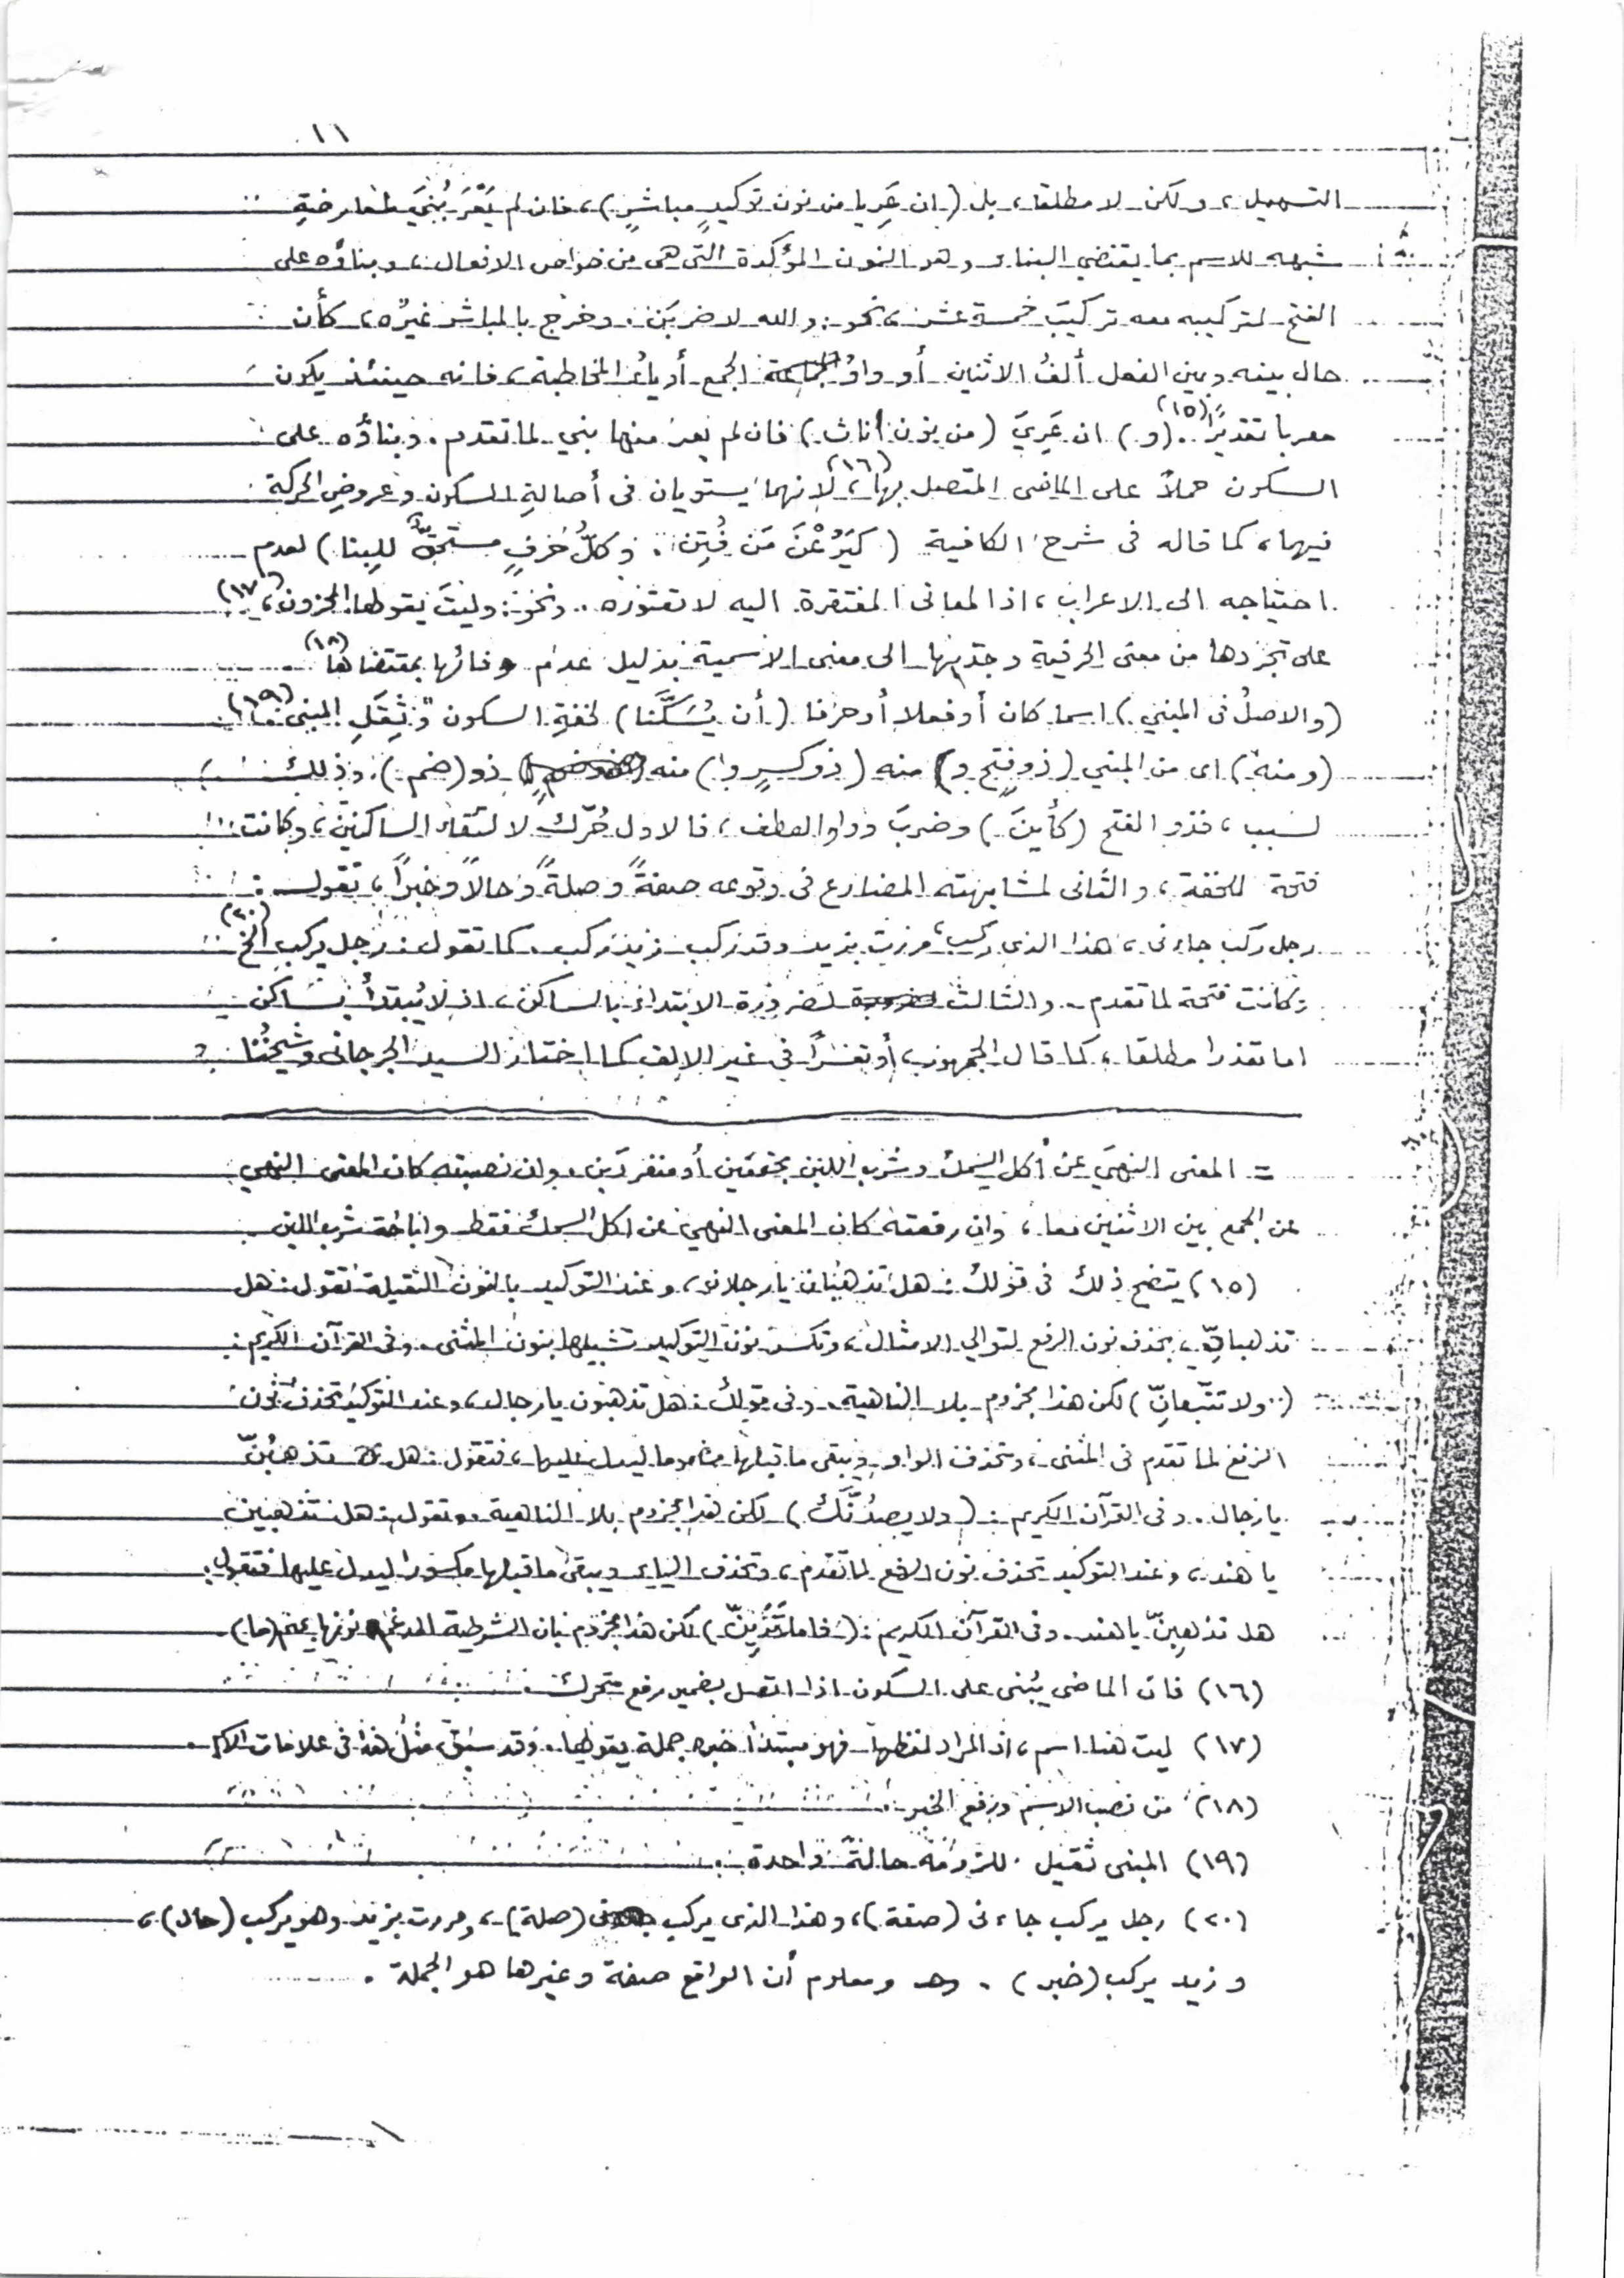 ١١
التسهيل، ولكن لا مطلقا، بل (ان عَرِيا من نون توكيدٍ مباشرٍ)، فان لم يَعْرَ بُنيَ لمعارضةِ
شبهه للاسم بما يقتضي البناء وهو النون المؤكدة التى هى من خواص الافعال، وبناؤه على
الفتح لتركيبه معه تركيبَ خمسة عشر، نحو: والله لاضربَن. وخرج بالمباشر غيرُه، كأن
حال بينه وبين الفعل ألفُ الاثنين أو واوُ الجمع أو ياءُ المخاطبة، فانه حينئذ يكون
معربا تقديرًا (١٥). (و) ان عَرِيَ (من نون اناث) فان لم يعر منها بني لما تقدم. وبناؤه على
السكون حملاً على الماضى المتصل بها (١٦)، لانهما يستويان فى أصالةِ السكون وعروضِ الحركة
فيهما، كما قاله فى شرح الكافية (كَيَرُعْنَ مَن فُتِن. وكلُّ حَرفٍ مستحِقٌّ للِبِنا) لعدم
احتياجه الى الاعراب، اذ المعانى المفتقرة اليه لا تعتوره. ونحوُ: وليتَ يقولها المحزون، (١٧)
على تجردها من معنى الحرفية وجذبها الى معنى الاسمية بدليل عدم وفائها بمقتضاها (١٨)
(والاصلُ فى المبني) اسما كان أو فعلا أو حرفا (أن يُسَكَّنا) لخفةِ السكون وثِقَلِ المبنى (١٩).
(ومنه) اى من المبني (ذو فتحٍ و) منه (ذو كسرٍ وا) منه ذو (ضم). وذلك
لسبب، فذو الفتح (كأينَ) وضربَ وواو العطف، فالاول حُرّك لالتقاء الساكنين، وكانت
فتحة للخفة، والثانى لمشابهته المضارع فى وقوعه صفةً وصلةً وحالاً وخبراً، تقول:
رجل ركب جاءنى، هذا الذى ركب، مررت بزيد وقد ركب زيد ركب. كما تقول: رجل يركب الخ (٢٠)
وكانت فتحة لما تقدم. والثالث لضرورة الابتداء بالساكن، اذ لا يُبتدأُ بساكن
اما تعذرا مطلقا، كما قال الجمهور، أو تعسّراً فى غير الالف كما اختار السيد الجرجانى وشيخُنا
= المعنى النهيَ عن أكل السمك وشرب اللبن مجتمعَين أو منفردَين. وان نصبته كان المعنى النهي
عن الجمع بين الاثنين معا، وان رفعته كان المعنى النهي عن اكل السمك فقط واباحة شرب اللبن.
(١٥) يتضح ذلك فى قولك: هل تذهبان يا رجلان، وعند التوكيد بالنون الثقيلة تقول: هل
تذهبانِّ، بحذف نون الرفع لتوالي الامثال، وتكسر نون التوكيد تشبيها بنون المثنى. وفى القرآن الكريم:
(..ولا تتّبعانِّ) لكن هذا مجزوم بلا الناهية. وفى قولك: هل تذهبون يا رجال، وعند التوكيد تحذف نون
الرفع لما تقدم فى المثنى، وتحذف الواو ويبقى ما قبلها مضموما ليدل عليها، فتقول: هل تذهبُنّ
يا رجال. وفى القرآن الكريم: (ولا يصدُنَّكَ) لكن هذا مجزوم بلا الناهية. وتقول: هل تذهبين
يا هند، وعند التوكيد تحذف نون الرفع لما تقدم، وتحذف الياء ويبقى ما قبلها مكسورا ليدل عليها فتقول:
هل تذهبِنّ يا هند. وفى القرآن الكريم: (فاما تَرَيِنّ) لكن هذا مجزوم بان الشرطية المدغم نونها بميم (ما).
(١٦) فان الماضى يُبنى على السكون اذا اتصل بضمير رفع متحرك.
(١٧) ليت هنا اسم، اذ المراد لفظها فهو مبتدأ خبره جملة يقولها. وقد سبق مثلُ هذا فى علامات الاسم.
(١٨) من نصب الاسم ورفع الخبر.
(١٩) المبنى ثقيل للزومه حالةً واحدة.
(٢٠) رجل يركب جاءنى (صفة)، وهذا الذى يركب (صلة)، ومررت بزيد وهو يركب (حال)،
وزيد يركب (خبر). ومعلوم أن الواقع صفة وغيرها هو الجملة.